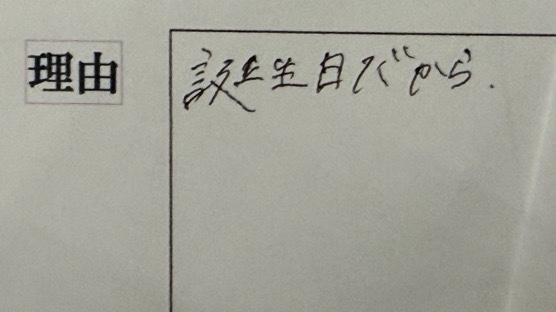 理由
誕生日だから.